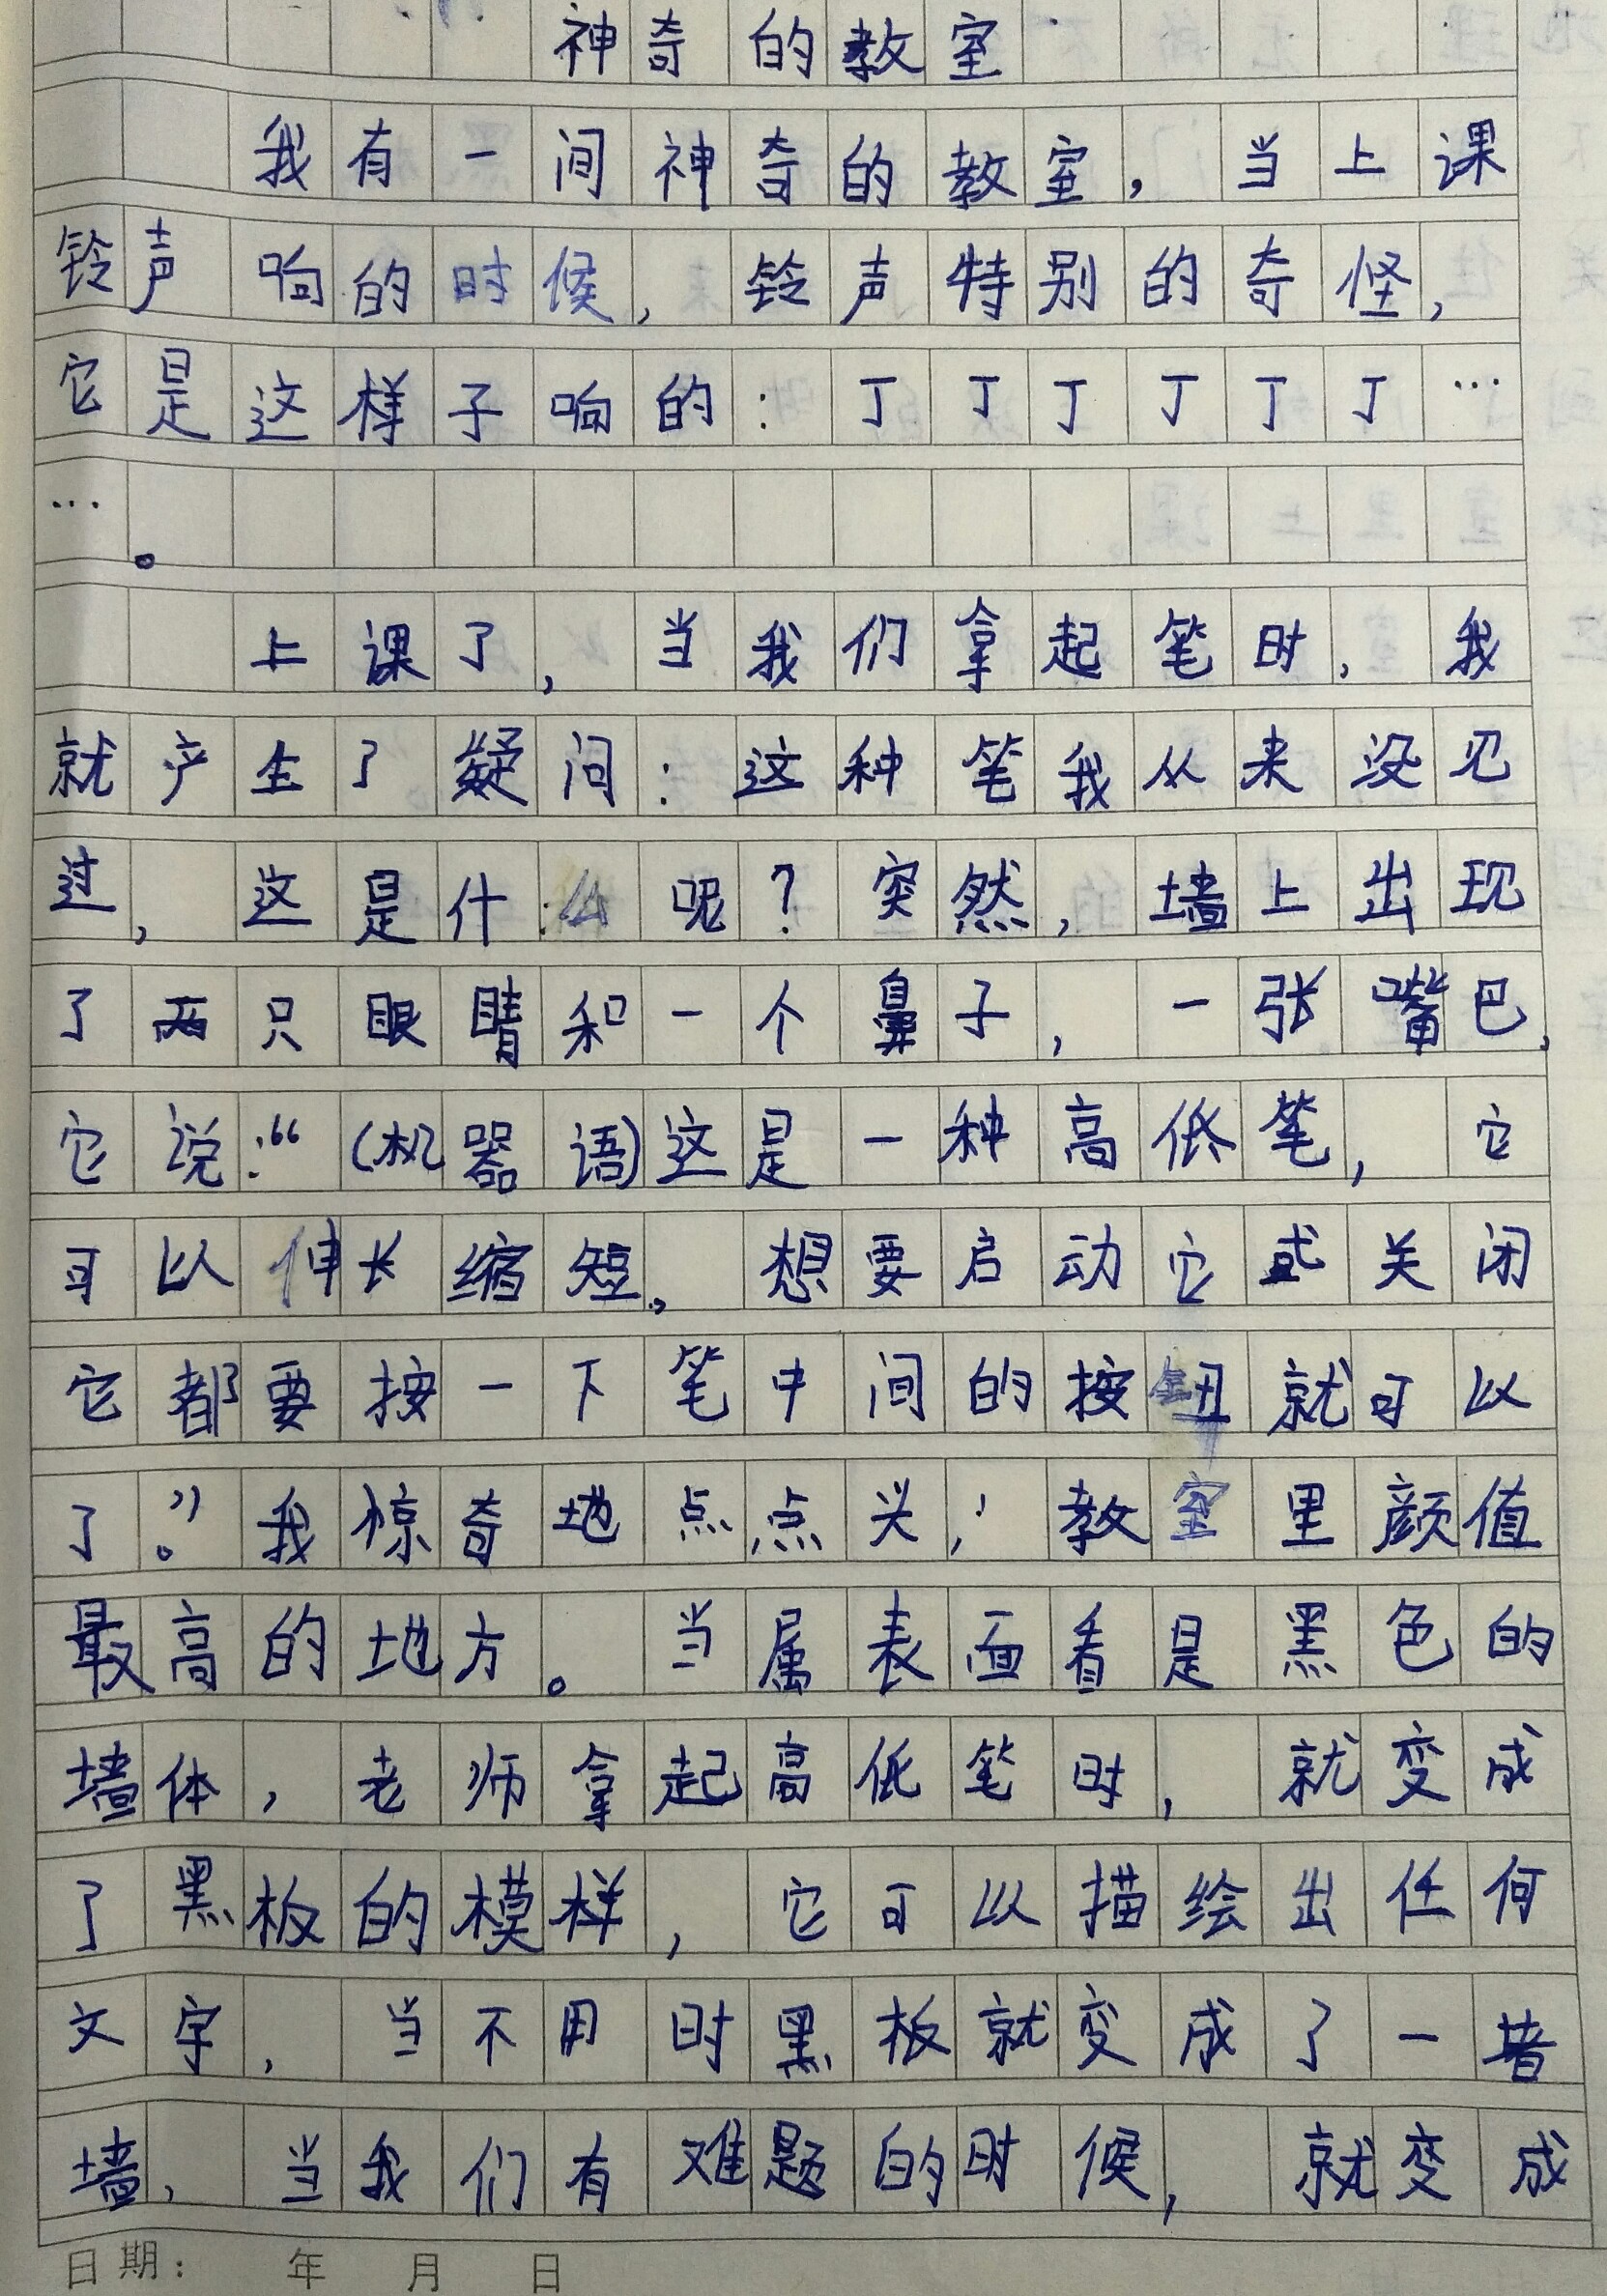 神奇的教室
我有一间神奇的教室，当上课
铃声响的时候，铃声特别的奇怪，
它是这样子响的：丁丁丁丁丁丁…
…。
上课了，当我们拿起笔时，我
就产生了疑问：这种笔我从来没见
过，这是什么呢？突然，墙上出现
了两只眼睛和一个鼻子，一张嘴巴，
它说：“(机器语)这是一种高低笔，它
可以伸长缩短。想要启动它或关闭
它都要按一下笔中间的按钮就可以
了。”我惊奇地点点头，教室里颜值
最高的地方。当属表面看是黑色的
墙体，老师拿起高低笔时，就变成
了黑板的模样，它可以描绘出任何
文字，当不用时黑板就变成了一堵
墙，当我们有难题的时候，就变成
日期： 年 月 日